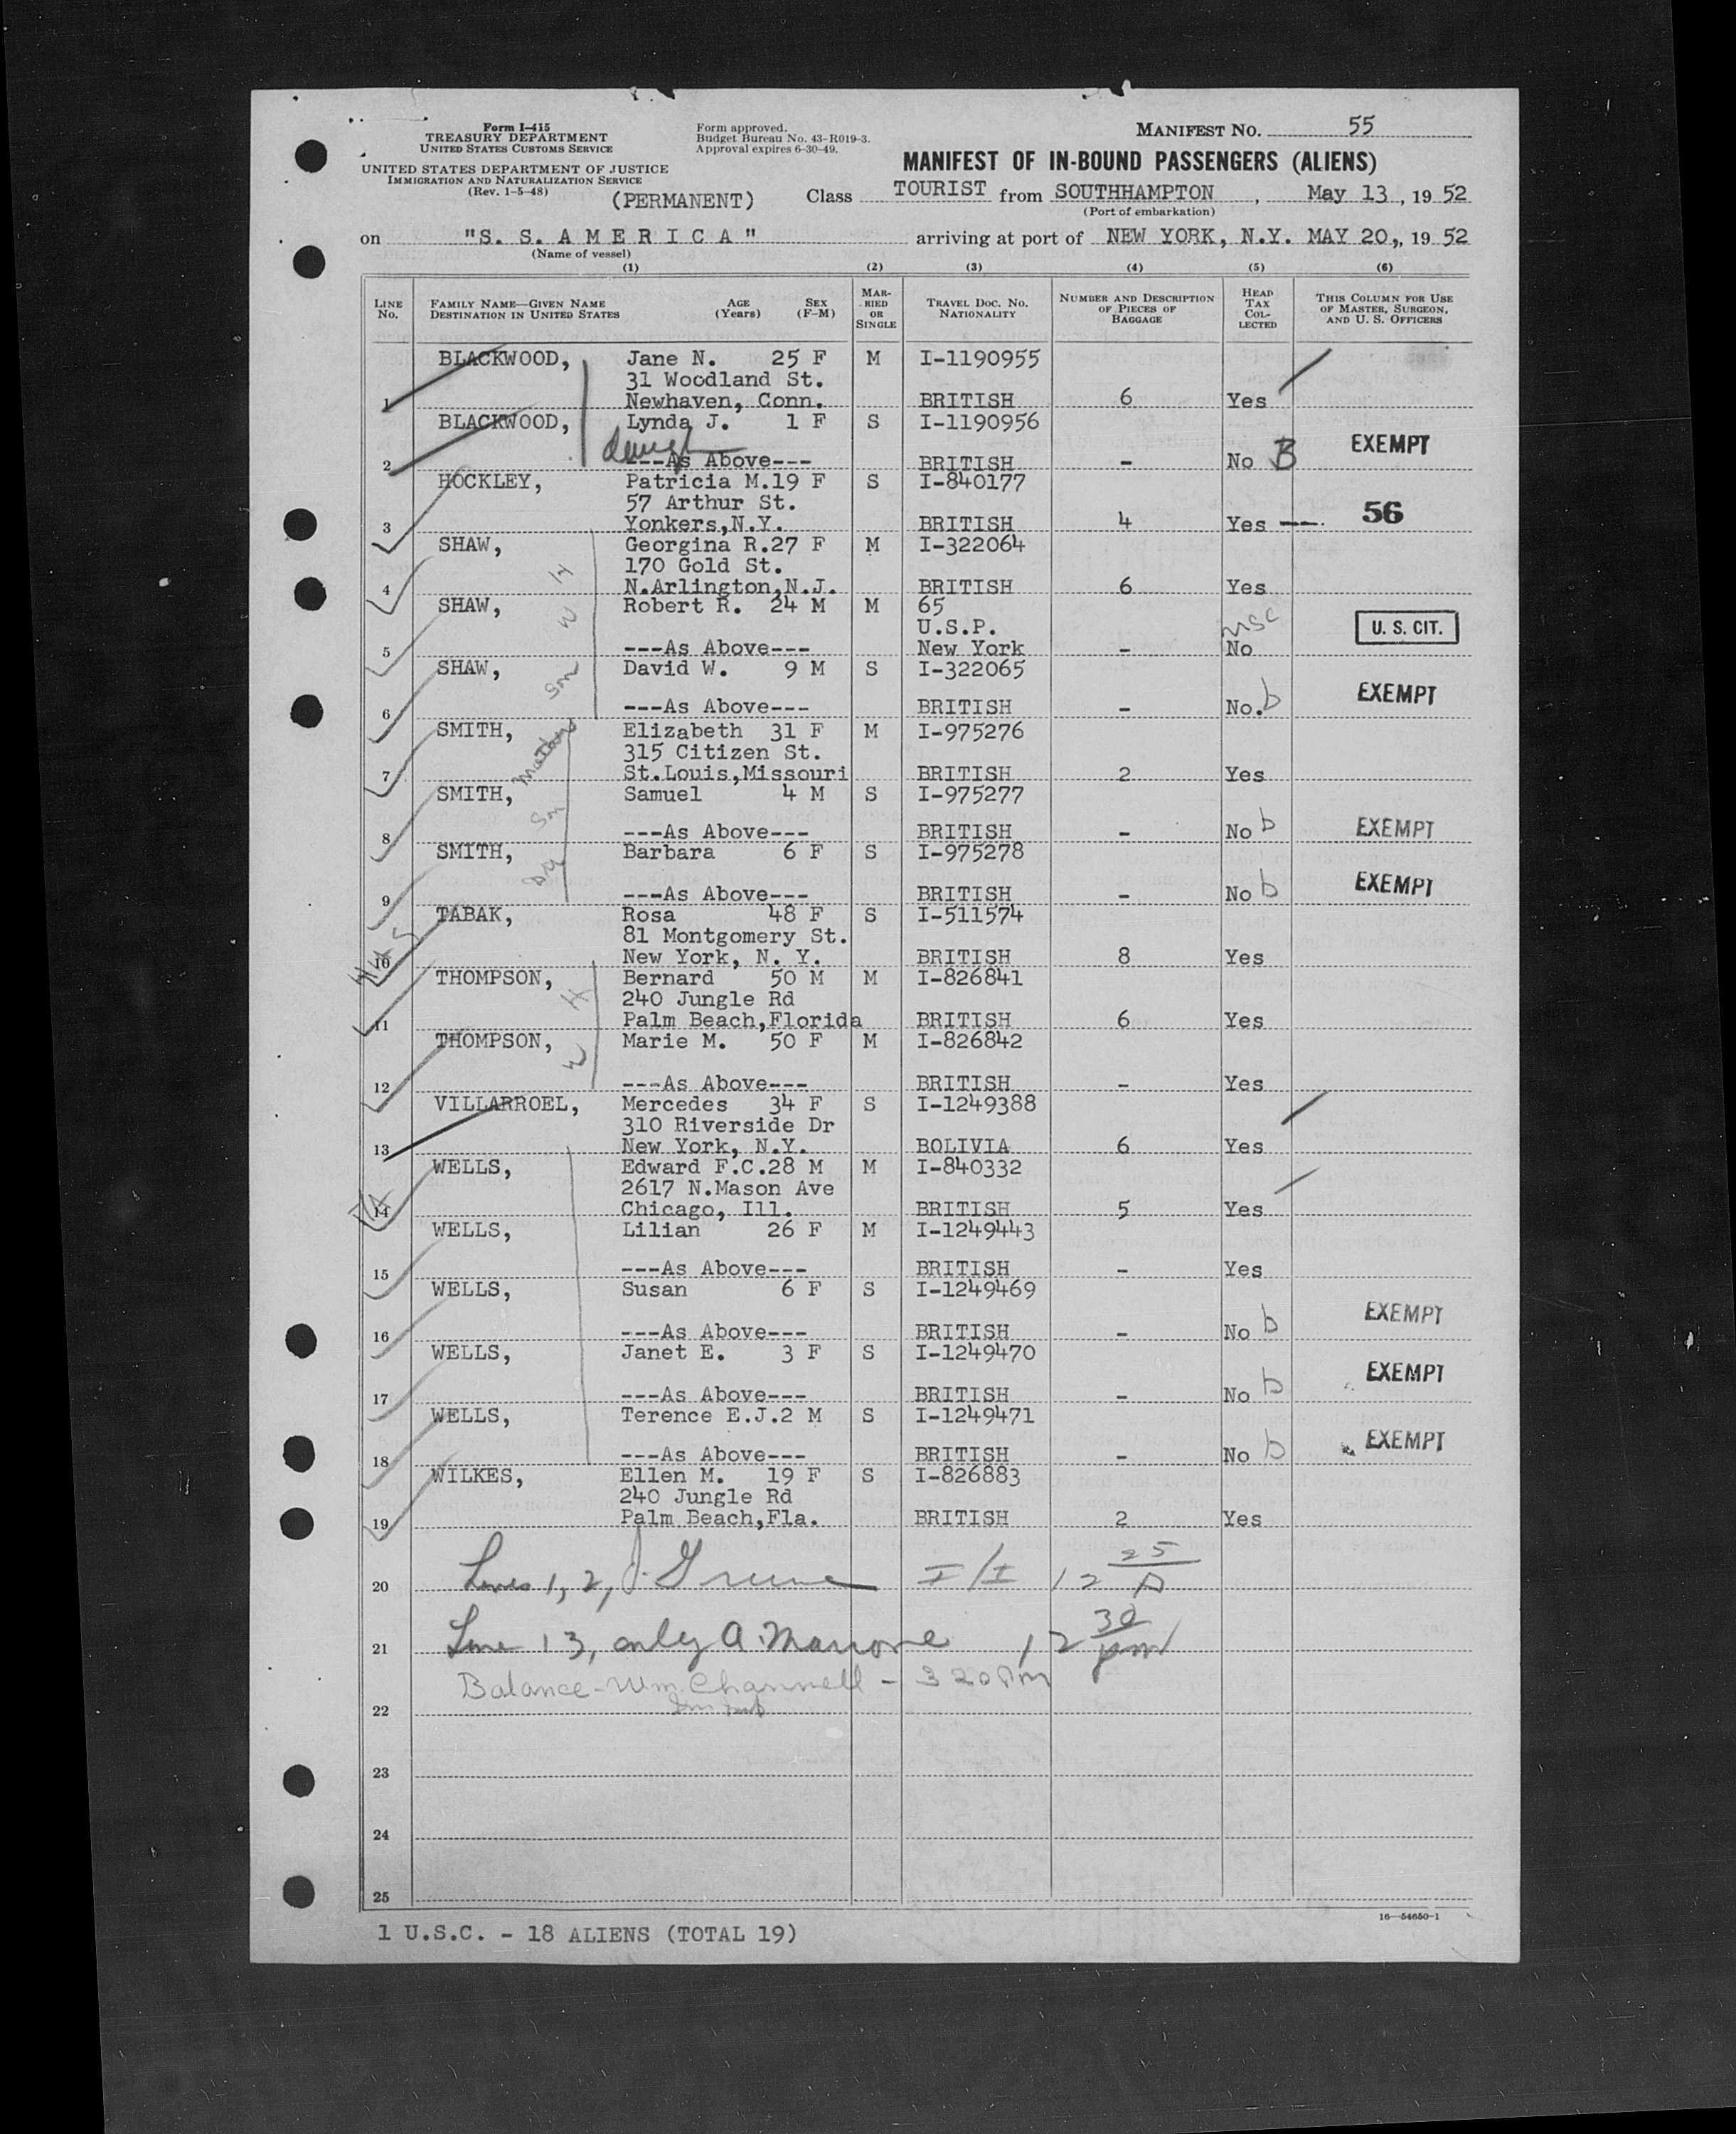 Form I-415
TREASURY DEPARTMENT
UNITED STATES CUSTOMS SERVICE
UNITED STATES DEPARTMENT OF JUSTICE
IMMIGRATION AND NATURALIZATION SERVICE
(Rev. 1-5-48)
(PERMANENT)
Form approved.
Budget Bureau No. 43-R019-3.
Approval expires 6-30-49.
MANIFEST NO. 55
MANIFEST OF IN-BOUND PASSENGERS (ALIENS)
Class TOURIST from SOUTHHAMPTON, May 13, 1952
(Port of embarkation)
on "S. S. A M E R I C A" arriving at port of NEW YORK, N.Y. MAY 20,, 1952
(Name of vessel)
(1) (2) (3) (4) (5) (6)
LINE No. FAMILY NAME—GIVEN NAME DESTINATION IN UNITED STATES AGE (Years) SEX (F-M) MARRIED OR SINGLE TRAVEL DOC. NO. NATIONALITY NUMBER AND DESCRIPTION OF PIECES OF BAGGAGE HEAD TAX COLLECTED THIS COLUMN FOR USE OF MASTER, SURGEON, AND U. S. OFFICERS
BLACKWOOD, Jane N. 25 F M I-1190955
31 Woodland St.
1 Newhaven, Conn. BRITISH 6 Yes
BLACKWOOD, Lynda J. 1 F S I-1190956
daugh EXEMPT
2 ---As Above--- BRITISH - No B
HOCKLEY, Patricia M.19 F S I-840177
57 Arthur St. 56
3 Yonkers,N.Y. BRITISH 4 Yes —
SHAW, Georgina R.27 F M I-322064
170 Gold St.
W
4 N.Arlington,N.J. BRITISH 6 Yes
SHAW, Robert R. 24 M M 65
U.S.P. USC U. S. CIT.
5 ---As Above--- New York - No
SHAW, David W. 9 M S I-322065
Son EXEMPT
6 ---As Above--- BRITISH - No. b
SMITH, Elizabeth 31 F M I-975276
Mother 315 Citizen St.
7 St.Louis,Missouri BRITISH 2 Yes
SMITH, Samuel 4 M S I-975277
Son
8 ---As Above--- BRITISH - No b EXEMPT
SMITH, Barbara 6 F S I-975278
9 ---As Above--- BRITISH - No b EXEMPT
TABAK, Rosa 48 F S I-511574
81 Montgomery St.
10 New York, N. Y. BRITISH 8 Yes
THOMPSON, Bernard 50 M M I-826841
H 240 Jungle Rd
11 Palm Beach,Florida BRITISH 6 Yes
THOMPSON, Marie M. 50 F M I-826842
W
12 ---As Above--- BRITISH - Yes
VILLARROEL, Mercedes 34 F S I-1249388
310 Riverside Dr
13 New York, N.Y. BOLIVIA 6 Yes
WELLS, Edward F.C.28 M M I-840332
2617 N.Mason Ave
14 Chicago, Ill. BRITISH 5 Yes
WELLS, Lilian 26 F M I-1249443
15 ---As Above--- BRITISH - Yes
WELLS, Susan 6 F S I-1249469
EXEMPT
16 ---As Above--- BRITISH - No b
WELLS, Janet E. 3 F S I-1249470
EXEMPT
17 ---As Above--- BRITISH - No b
WELLS, Terence E.J.2 M S I-1249471
EXEMPT
18 ---As Above--- BRITISH - No b
WILKES, Ellen M. 19 F S I-826883
240 Jungle Rd
19 Palm Beach,Fla. BRITISH 2 Yes
20 Lines 1, 2, I/I 12 25
21 Line 13, only A. Marrone 12 30 pm
Balance - Wm. Channell - 3 20 Pm
22
23
24
25
16—54650-1
1 U.S.C. - 18 ALIENS (TOTAL 19)